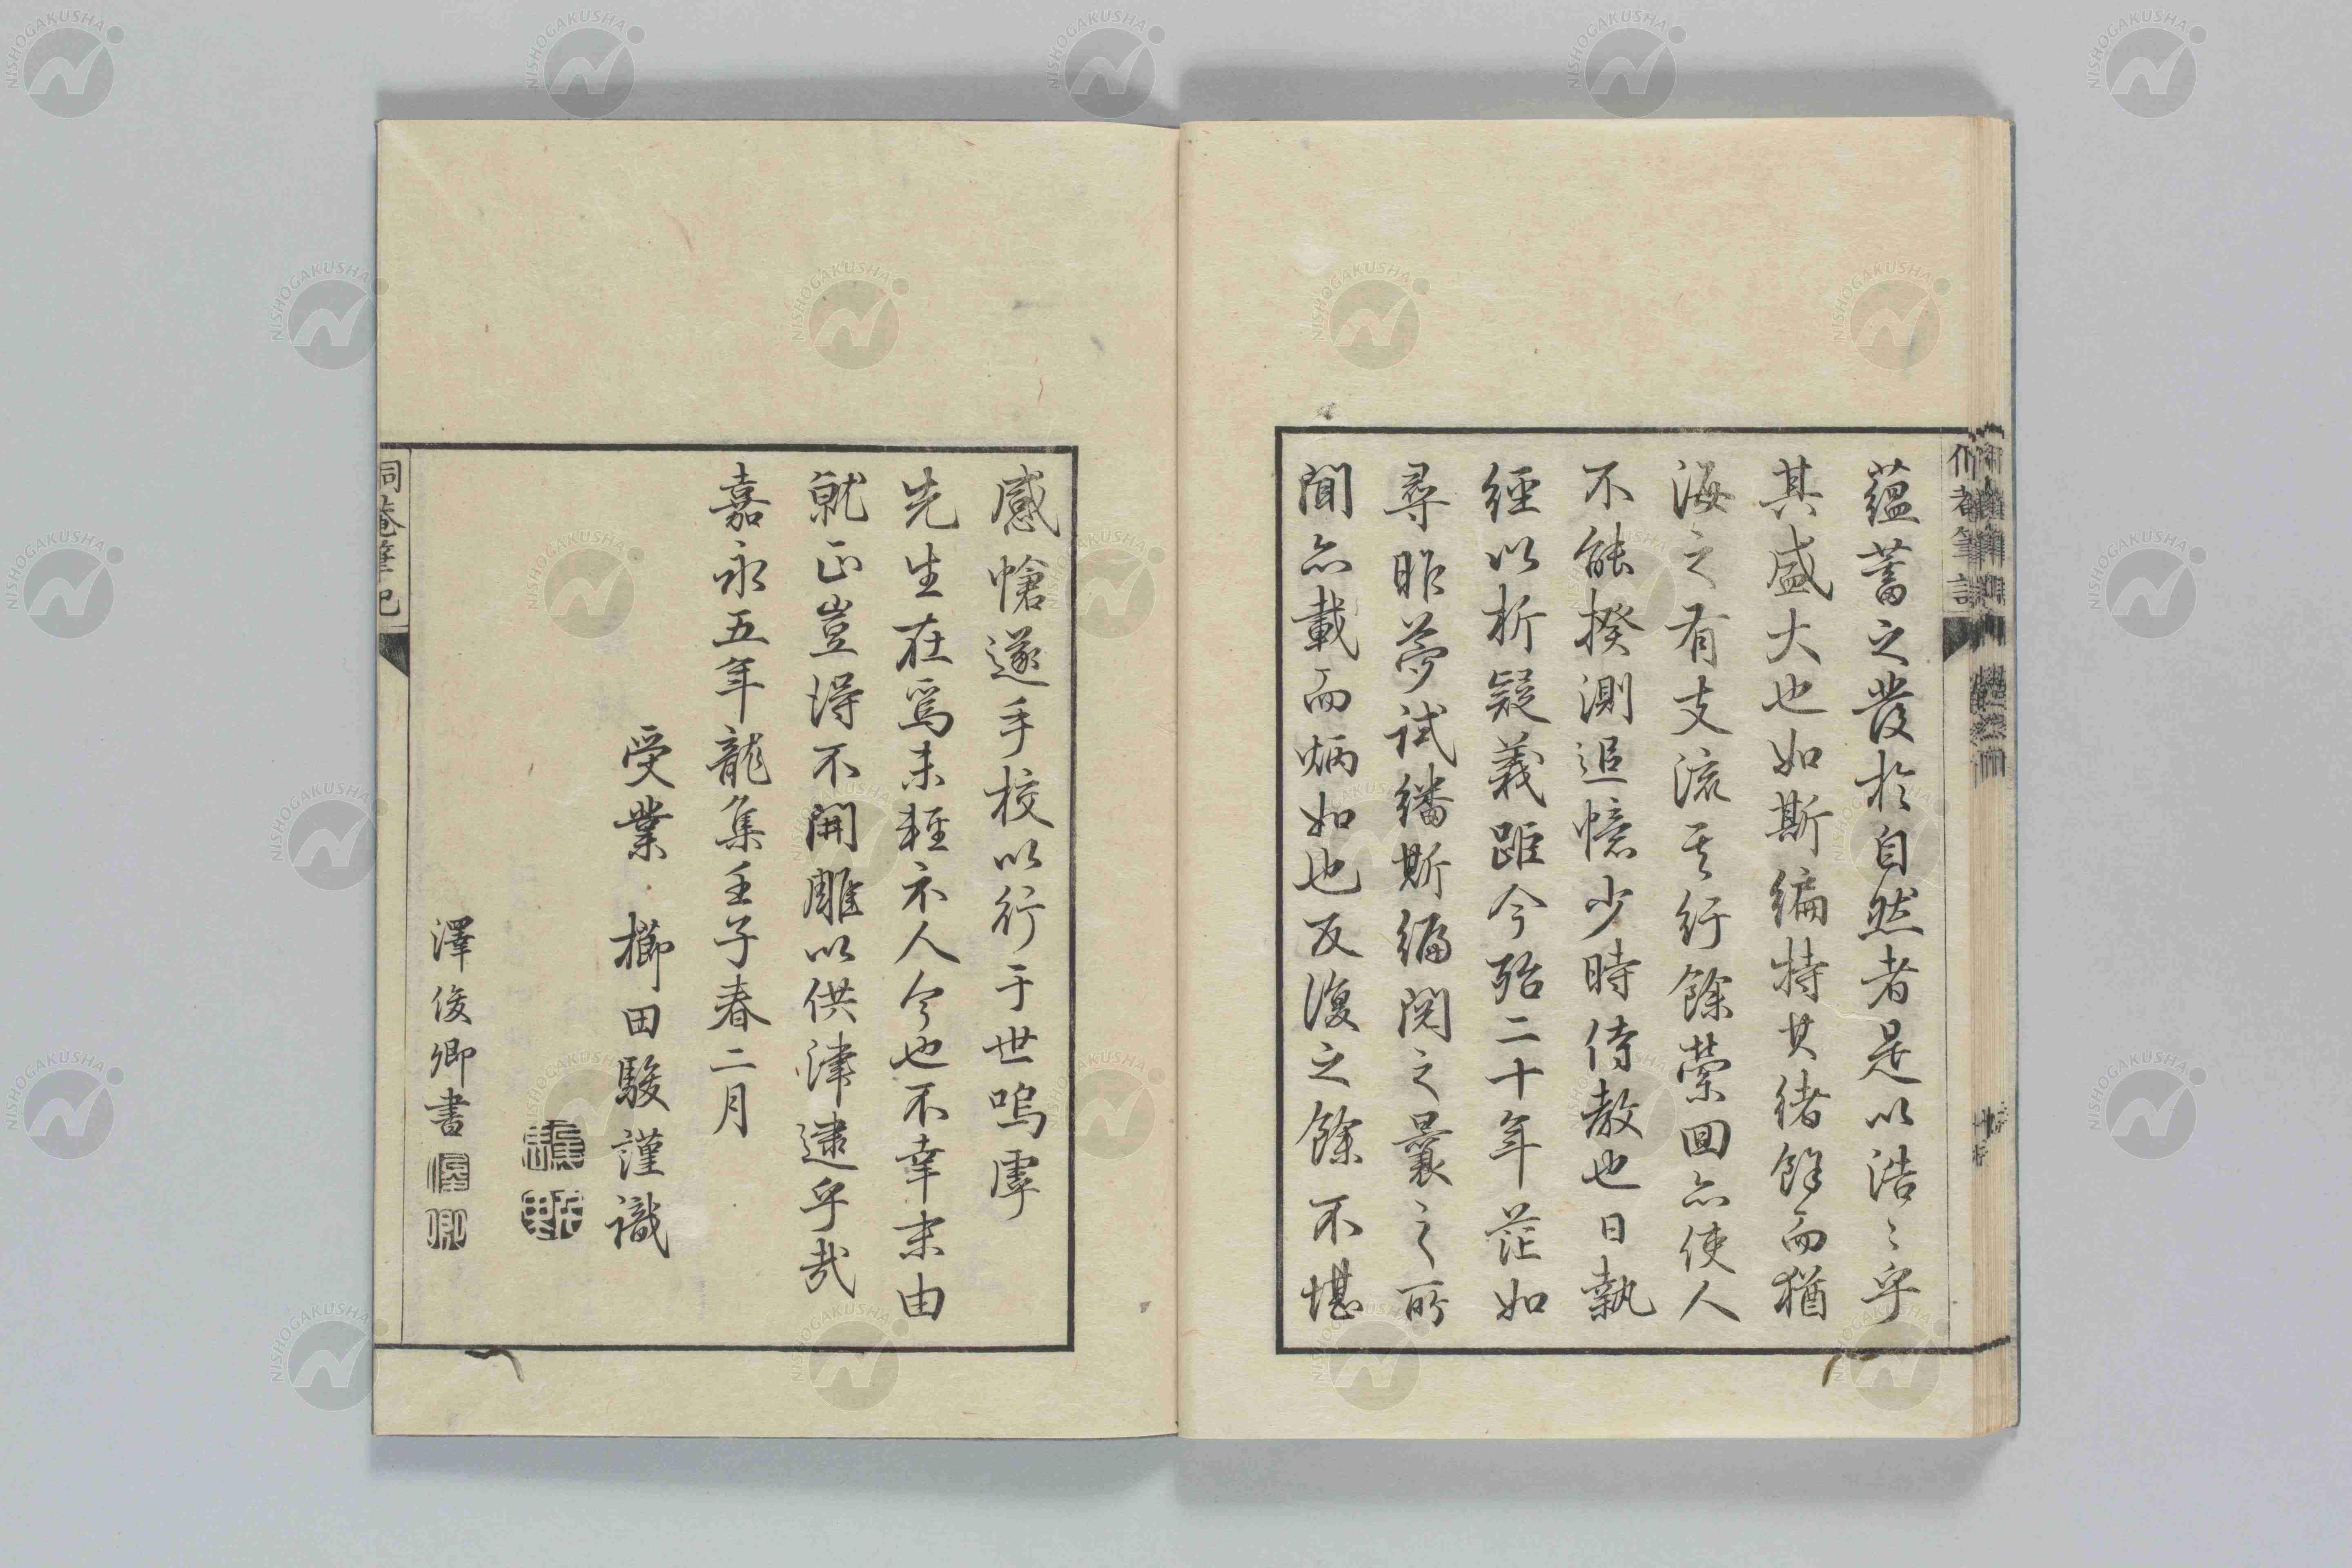 蘊蓄之發於自然者是以浩〻乎
其盛大也如斯編特其緒餘而猶
海之有支流其行餘縈回亦使人
不能揆測追憶少時侍教也日執
經以析疑義距今殆二十年茫如
尋昨夢試繙斯編閱之曩之所
聞亦載而炳如也反復之餘不堪
感愴遂手校以行于世嗚虖
先生在焉未輕示人今也不幸末由
就正豈得不開雕以供津逮乎哉
嘉永五年龍集壬子春二月
受業 櫛田駿謹識
澤俊卿書
俊卿
侗菴筆記
NISHOGAKUSHA